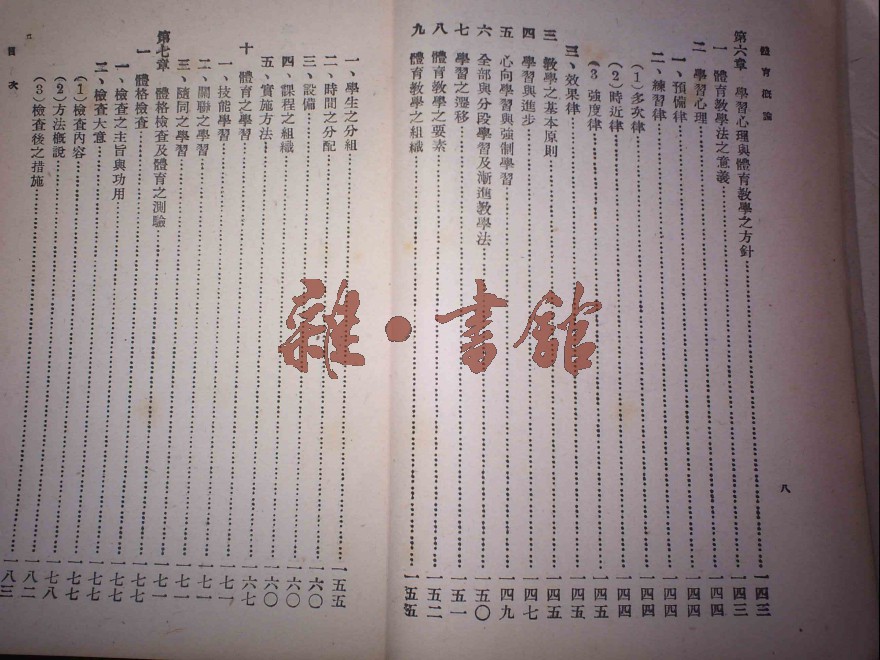 體育概論
八
第六章 學習心理與體育教學之方針……一四三
一 體育教學法之意義……一四三
二 學習心理……一四四
一、預備律……一四四
二、練習律……一四四
(1)多次律……一四四
(2)時近律……一四四
(3)強度律……一四四
三、效果律……一四五
三 教學之基本原則……一四五
四 學習與進步……一四七
五 心向學習與強制學習……一四九
六 全部與分段學習及漸進教學法……一五〇
七 學習之遷移……一五一
八 體育教學之要素……一五二
九 體育教學之組織……一五五
一、學生之分組……一五五
二、時間之分配……一六〇
三、設備……一六〇
四、課程之組織……一六〇
五、實施方法……一六七
十 體育之學習……一七一
一、技能學習……一七一
二、關聯之學習……一七一
三、隨同之學習……一七七
第七章 體格檢查及體育之測驗……一七七
一 體格檢查……一七七
一、檢查之主旨與功用……一七七
二、檢查大意……一七七
(1)檢查內容……一七八
(2)方法概說……一八二
(3)檢查後之措施……一八三
目次
雜·書館